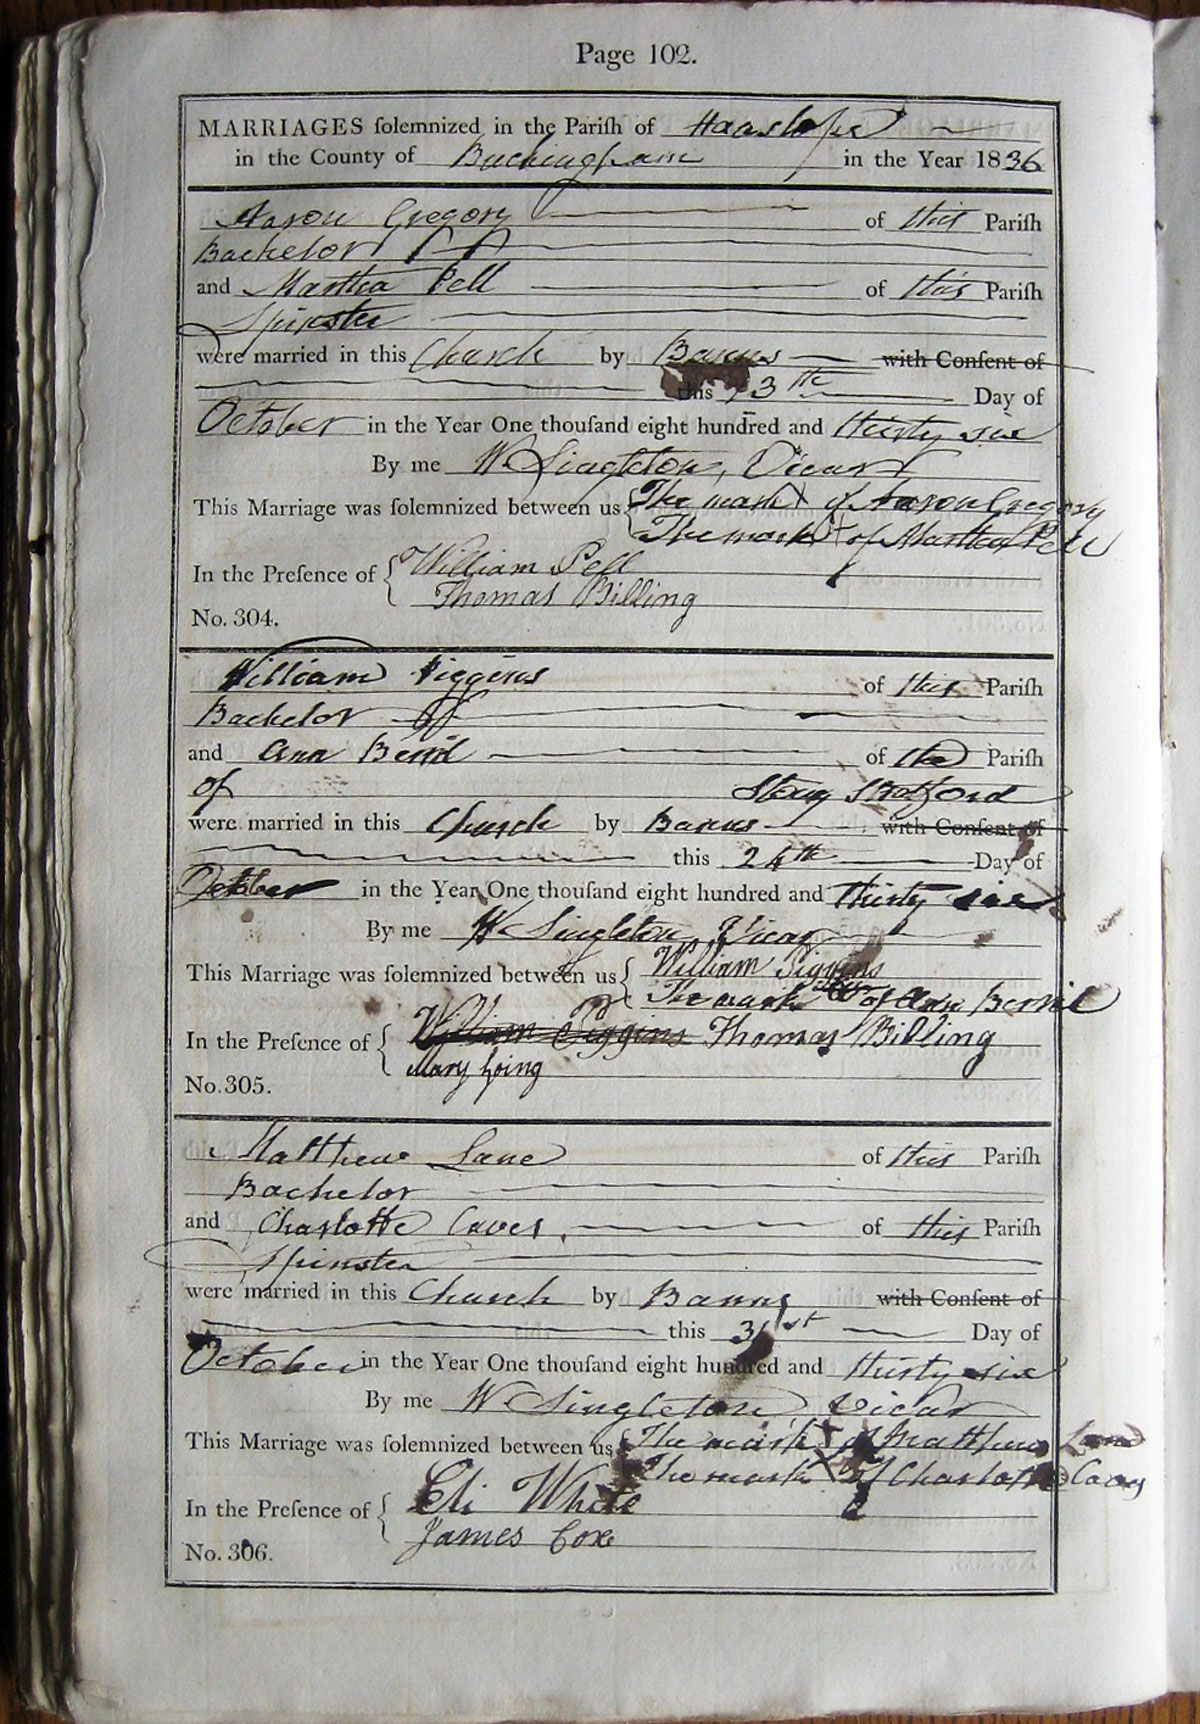 Page 102.
MARRIAGES ſolemnized in the Pariſh of Hanslope
in the County of Buckingham in the Year 1836
Aaron Gregory of this Pariſh
Bachelor
and Martha Pell of this Pariſh
Spinster
were married in this Church by Banns with Conſent of
this 13th Day of
October in the Year One thouſand eight hundred and thirty six
By me W Singleton, Vicar
This Marriage was ſolemnized between us The mark X of Aaron Gregory
The mark + of Martha Pell
In the Preſence of William Pell
Thomas Billing
No. 304.
William Piggins of this Pariſh
Bachelor of
and Ann of the Pariſh
of Stony Stratford
were married in this Church by Banns with Conſent of
this 24th Day of
October in the Year One thouſand eight hundred and Thirty six
By me W Singleton Vicar
This Marriage was ſolemnized between us William Piggins
The mark of Ann
In the Preſence of William Piggins Thomas Billing
Mary
No. 305.
Matthew Lane of this Pariſh
Bachelor
and Charlotte Caves, of this Pariſh
Spinster
were married in this Church by Banns, with Conſent of
this 31st Day of
October in the Year One thouſand eight hundred and thirty six
By me W Singleton Vicar
This Marriage was ſolemnized between us The mark + of Matthew Lane
The mark X of Charlotte Caves
In the Preſence of Eli White
James Cox
No. 306.